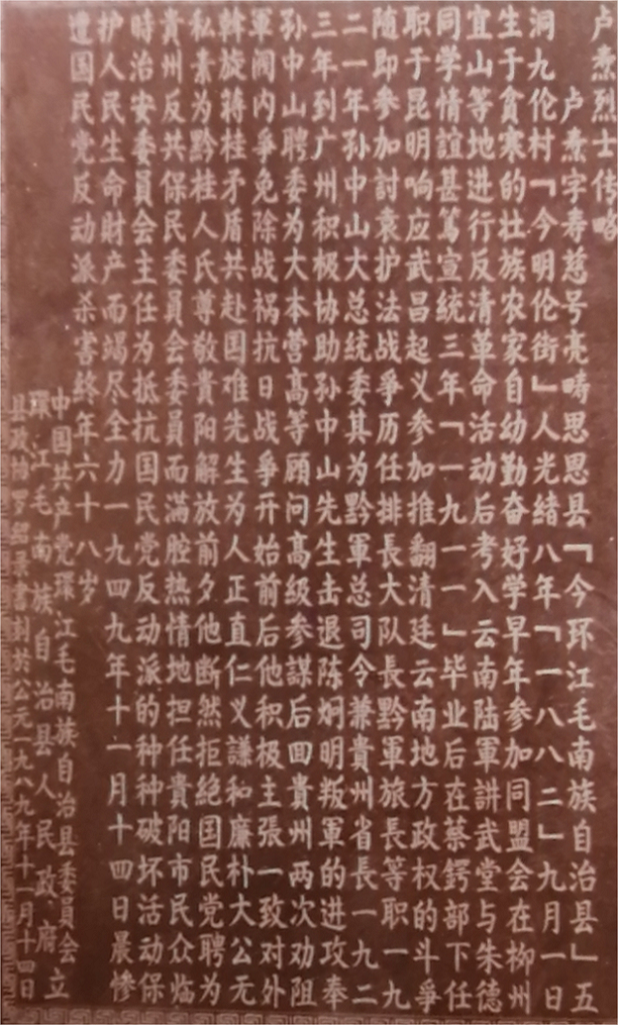 卢焘烈士传略
卢焘字寿慈号亮畴思恩县「今环江毛南族自治县」五
洞九伦村「今明伦街」人光緒八年「一八八二」九月一日
生于貧寒的壮族农家自幼勤奋好学早年参加同盟会在柳州
宜山等地进行反清革命活动后考入云南陆軍讲武堂与朱德
同学情誼甚篤宣統三年「一九一一」毕业后在蔡鍔部下任
职于昆明响应武昌起义参加推翻清廷云南地方政权的斗爭
随即参加討袁护法战爭历任排長大队長黔軍旅長等职一九
二一年孙中山大总统委其为黔軍总司令兼貴州省長一九二
三年到广州积极协助孙中山先生击退陈炯明叛軍的进攻奉
孙中山聘委为大本营高等顾问高級参謀后回貴州两次劝阻
軍阀内爭免除战祸抗日战爭开始前后他积极主張一致对外
斡旋蒋桂矛盾共赴国难先生为人正直仁义謙和廉朴大公无
私素为黔桂人氏尊敬貴阳解放前夕他断然拒絶国民党聘为
貴州反共保民委員会委員而满腔热情地担任貴阳市民众临
時治安委員会主任为抵抗国民党反动派的种种破坏活动保
护人民生命財产而竭尽全力一九四九年十一月十四日晨惨
遭国民党反动派杀害終年六十八岁
中国共产党环江毛南族自治县委員会立
環江毛南族自治县人民政府
县政协罗紹录書刻於公元一九八九年十一月十四日